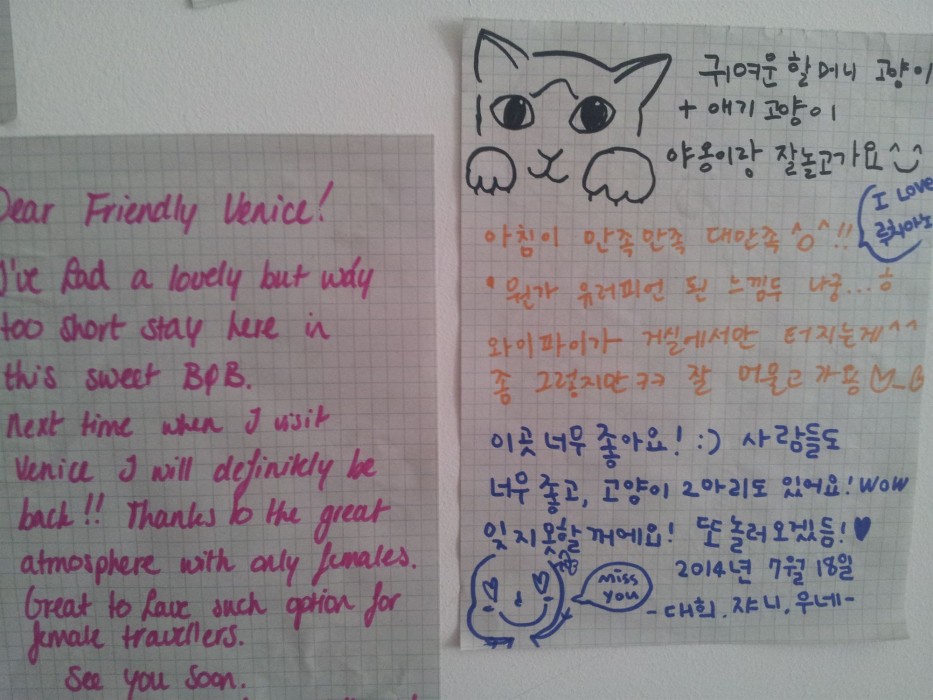 Dear Friendly Venice!
I've had a lovely but way
too short stay here in
this sweet B&B.
Next time when I visit
Venice I will definitely be
back!! Thanks to the great
atmosphere with only females.
Great to have such option for
female travellers.
See you soon.
귀여운 할머니 고양이
+ 애기고양이
야옹이랑 잘놀고가요^_^
I LOVE
루치아노
아침이 만족만족 대만족^o^!!
뭔가 유러피언 된 느낌두 나궁...ㅎ
와이파이가 거실에서만 터지는게^^
좀 그렇지만ㅋㅋ 잘 머물고 가용
이곳 너무 좋아요! :) 사람들도
너무 좋고, 고양이 2마리도 있어요! WOW
잊지 못할꺼에요! 또 놀러오겠듬! ♥
miss
you
2014년 7월 18일
-대희.쟈니.우네-